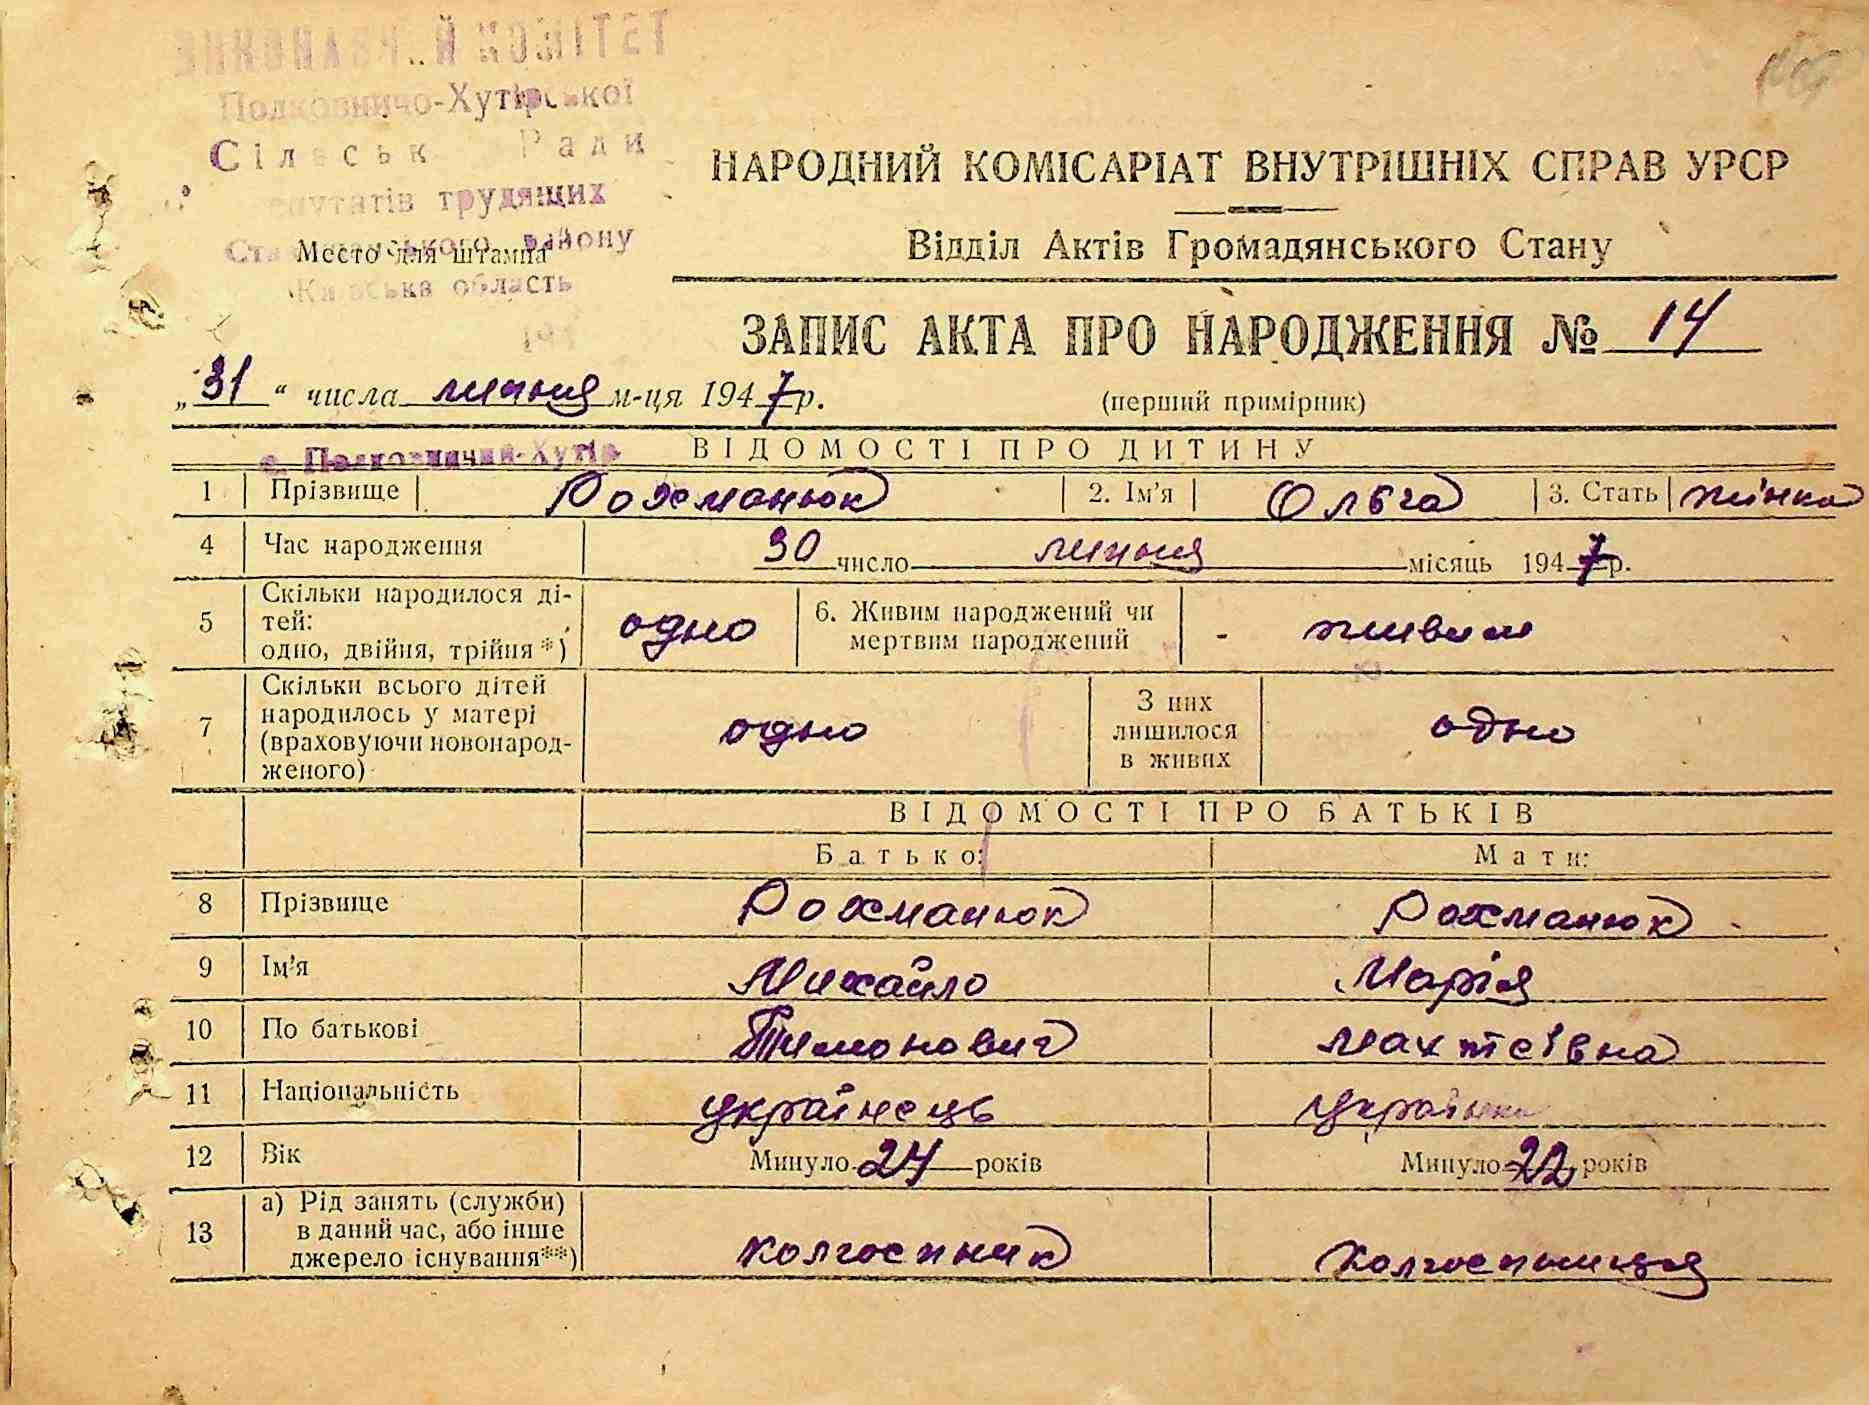 Полковничо-Хутірської
Сільськ Ради
депутатів трудящих
Ста ського району
Место для штампа
Київська область
194
НАРОДНИЙ КОМІСАРІАТ ВНУТРІШНІХ СПРАВ УРСР
Відділ Актів Громадянського Стану
ЗАПИС АКТА ПРО НАРОДЖЕННЯ № 14
„31“ числа липня м-ця 1947 р.
(перший примірник)
с. Полковничий-Хутір
ВІДОМОСТІ ПРО ДИТИНУ
1 Прізвище Рохманюк 2. Ім'я Ольга 3. Стать жінка
4 Час народження 30 число липня місяць 1947 р.
5 Скільки народилося ді-
тей:
одно, двійня, трійня *)
одно
6. Живим народжений чи
мертвим народжений
живим
7 Скільки всього дітей
народилось у матері
(враховуючи новонарод-
женого)
одно
З них
лишилося
в живих
одно
ВІДОМОСТІ ПРО БАТЬКІВ
Батько: Мати:
8 Прізвище Рохманюк Рохманюк
9 Ім'я Михайло Марія
10 По батькові Тимонович Махтеївна
11 Національність українець українка
12 Вік Минуло 24 років Минуло 22 років
13 а) Рід занять (служби)
в даний час, або інше
джерело існування**)
колгоспник колгоспниця